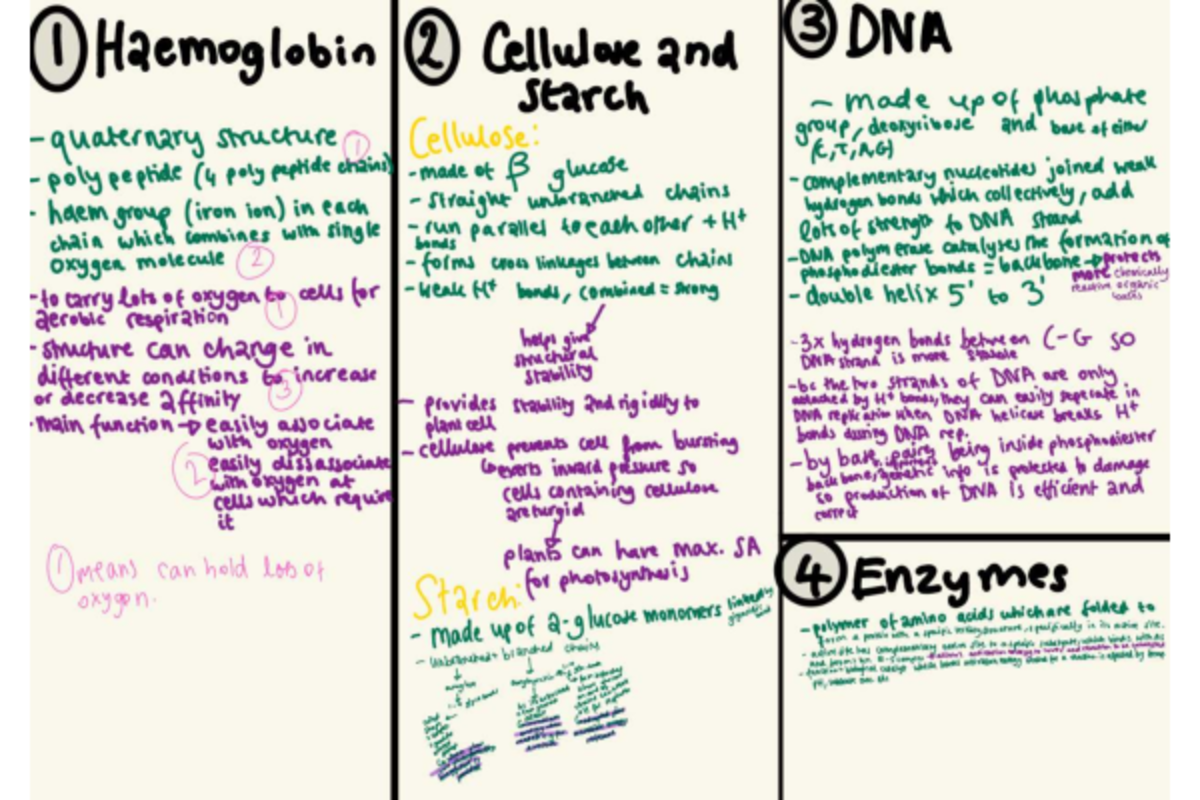 1 Haemoglobin
- quaternary structure 1
- poly peptide (4 poly peptide chains)
- haem group (iron ion) in each
chain which combines with single
oxygen molecule 2
- to carry lots of oxygen to cells for
aerobic respiration 1
- structure can change in
different conditions to increase
or decrease affinity 3
- main function → easily associate
with oxygen
2 easily dissassociate
with oxygen at
cells which require
it
1 means can hold lots of
oxygen.
2 Cellulose and
starch
Cellulose:
- made of β glucose
- straight unbranched chains
- run parallel to each other + H+
bonds
- forms cross linkages between chains
- weak H+ bonds, combined = strong
helps give
structural
stability
- provides stability and rigidity to
plant cell
- cellulose prevents cell from bursting
exerts inward pressure so
cells containing cellulose
are turgid
plants can have max. SA
for photosynthesis
Starch:
- made up of α-glucose monomers linked by
glycosidic
- unbranched + branched chains
3 DNA
- made up of phosphate
group, deoxyribose and base of either
(C, T, A, G)
- complementary nucleotides joined weak
hydrogen bonds which collectively, add
lots of strength to DNA strand
- DNA polymerase catalyses the formation of
phosphodiester bonds = backbone → protects
more chemically
reactive organic
bases
- double helix 5' to 3'
- 3x hydrogen bonds between C-G so
DNA strand is more stable
- bc the two strands of DNA are only
attached by H+ bonds, they can easily seperate in
DNA replication when DNA helicase breaks H+
bonds during DNA rep.
- by base pairs being inside phosphodiester
backbone, genetic info is protected to damage
so production of DNA is efficient and
correct
4 Enzymes
- polymer of amino acids which are folded to
form a protein with a specific tertiary structure, specifically in its active site.